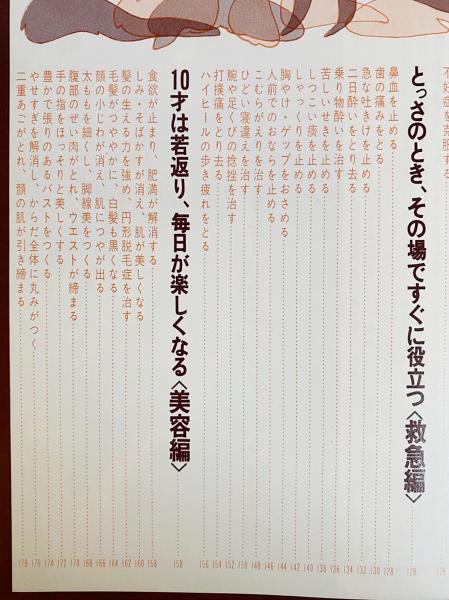 不妊症を克服する
とっさのとき、その場ですぐに役立つ〈救急編〉 128
鼻血を止める 128
歯の痛みをとる 130
急な吐きけを止める 132
二日酔いをとり去る 134
乗り物酔いを治す 136
苦しいせきを止める 138
しつこい痰を止める 140
しゃっくりを止める 142
胸やけ・ゲップをおさめる 144
人前でのおならを止める 146
こむらがえりを治す 148
ひどい寝違えを治す 150
腕や足くびの捻挫を治す 152
打撲痛をとり去る 154
ハイヒールの歩き疲れをとる 156
10才は若返り、毎日が楽しくなる〈美容編〉 158
食欲が止まり、肥満が解消する 158
しみ・そばかすが消え、肌が美しくなる 160
髪の生える力を強め、円形脱毛症を治す 162
毛髪がつやを増し、白髪も黒くなる 164
顔の小じわが消え、肌につやが出る 166
太ももを細くし、脚線美をつくる 168
腹部のぜい肉がとれ、ウエストが締まる 170
手の指をほっそりと美しくする 172
豊かで張りのあるバストをつくる 174
やせすぎを解消し、からだ全体に丸みがつく 176
二重あごがとれ、顔の肌が引き締まる 178